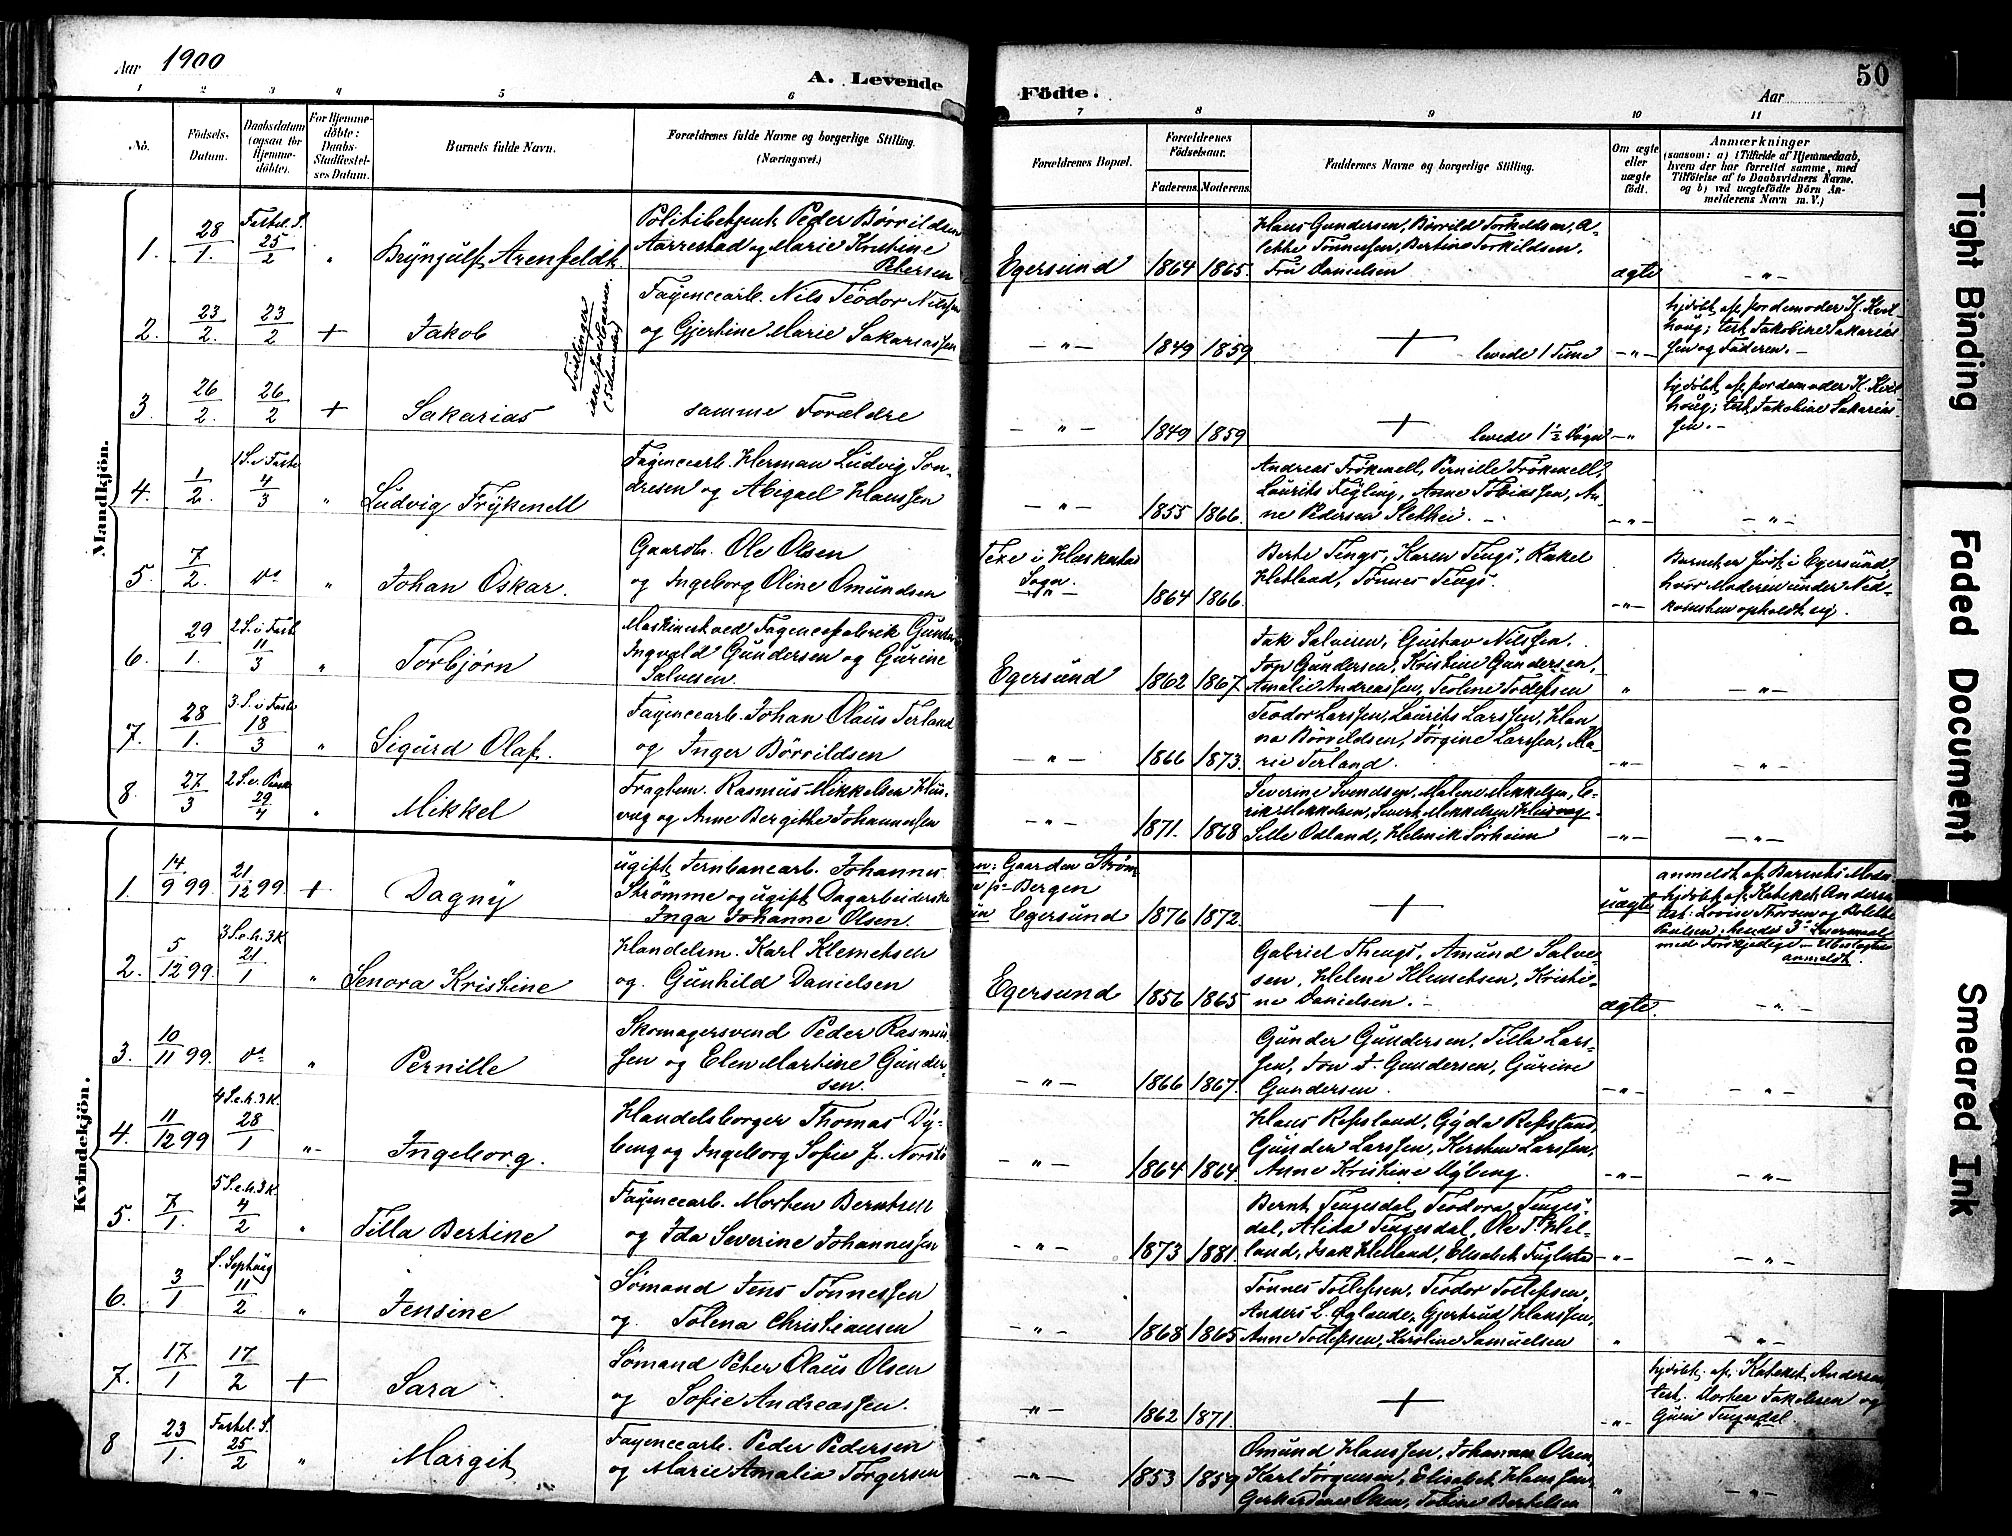 Aar 1900
A. Levende
Födte.
Aar
50
1 2 3 4 5 6 7 8 9 10 11
No.
Födsels-
Datum.
Daabsdatum
(ogsaa for
Hjemme-
döbte).
For Hjemme-
döbte:
Daabs-
Stadfæstel-
ses Datum.
Barnets fulde Navn.
Forældrenes fulde Navne og borgerlige Stilling.
(Næringsvei.)
Forældrenes Bopæl.
Forældrenes
Födselsaar.
Faderens. Moderens.
Faddernes Navne og borgerlige Stilling.
Om ægte
eller
uægte
födt.
Anmærkninger
(saasom: a) i Tilfælde af Hjemmedaab,
hvem der har forrettet samme, med
Tilföielse af to Daabsvidners Navne.
og b) ved uægtefödte Börn An-
melderens Navn m. V.)
Mandkjön.
1. 28/1. Fastel. S. 25/2 " Brynjulf Arenfeldt
Politibetjent Peder Börrildsen
Aarrestad og Marie Kristine
Petersen
Egersund 1864 1865.
Hans Gundersen, Börrild Torkeldsen, A-
lette Tönnessen, Bertine Torkildsen,
Fru Danielsen
ægte - " -
2. 23/2. 23/2 + Jakob
Tvillinger
Fayencearb. Nils Teodor Nilssen
og Gjertine Marie Sakariassen
- " - 1849 1859 + levede 1 Time - " -
hjdöbt af Jordemoder K. Kvel-
houg; test. Jakobine Sakarias-
sen og Faderen. -
3. 26/2. 26/2 + Sakarias
samme Forældre
- " - 1849 1859 + levede 1 1/2 Dögn - " -
hjdöbt af Jordemoder K. Kvel-
houg; test. Jakobine Sakarias-
sen. -
4. 1/2. 1 S. i Faste 4/3 " Ludvig Frykmell
Fayencearb. Herman Ludvig Son-
dresen og Abigael Hanssen
- " - 1855 1866.
Andreas Frökmell, Pernille Frökmell,
Laurits Fegling, Anne Tobiassen, An-
ne Pedersen Slettei. -
- " - - " -
5. 7/2. do " Johan Oskar.
Gaardb. Ole Olsen
og Ingeborg Oline Omundsen
Sogn.
- " - 1864 1866.
Berte Tengs, Karen Tengs, Rakel
Hetland, Tönnes Tengs.
- " -
Barnet er født i Egersund,
hvor Moderen under Ned-
komsten opholdt sig.
6. 29/1. 2 S. i Faste 11/3 " Torbjörn
Maskinist ved Fayencefabrik Gunder
Ingvald Gundersen og Gurine
Salvesen.
Egersund 1862 1867
Jak Salvesen, Gustav Nilssen,
Jon Gundersen, Kristine Gundersen,
Amalie Andreassen, Teoline Tollefsen
" - " -
7. 28/1. 3. S. i Faste 18/3 " Sigurd Olaf.
Fayencearb. Johan Olaus Terland
og Inger Börrildsen
- " - 1866 1873.
Teodor Larssen, Laurits Larssen, Han-
na Börrildsen, Jörgine Larssen, Ma-
rie Terland.
- " - - " -
8. 27/3 2 S. e. Paaske 29/4 " Mikkel
Fragtem. Rasmus Mikkelsen Hus-
væg og Anne Bergitte Johannessen
- " - 1871. 1868
Severine Svendsen, Malene Mikkelsen, E-
rik Mikkelsen, Sivert Mikkelsen Husvæg,
Sille Odland, Helmik Sörheim
- " - - " -
Kvindekjön.
1. 14/9 99. 21/12 99. + Dagny
ugift Jernbanearb. Johannes
Strömme og ugift Dagarbeiderske
Inga Johanne Olsen.
Gaarden Ström
Bergen
Egersund 1876 1872. + uægte
anmeldt af Barnets Moder
hjdöbt af Kateket Andersen
test: Lovise Thorsen og Bolette
2. 5/12 99. 3 S. e. h. 3 K. 21/1 " Senora Kristine
Handelsm. Karl Klemetsen
og Gunhild Danielsen
Egersund 1856 1865
Gabriel Thengs, Amund Salve-
sen, Helene Klemetsen, Kristi-
ne Danielsen. -
ægte. - " -
3. 10/11 99. do " Pernille
Skomagersvend Peder Rasmus-
sen og Elen Martine Gunder-
sen.
- " - 1866 1867.
Gunder Gundersen, Tilla Lars-
sen, Jon J. Gundersen, Gurine
Gundersen.
- " - - " -
4. 11/12 99 4 S. e. h. 3 K. 28/1 " Ingeborg.
Handelsborger Thomas Dy-
berg og Ingeborg Sofie f. Norstö
- " - 1864 1864.
Hans Refsland, Gyda Refsland,
Gunder Larssen, Kirsten Larssen,
Anne Kristine Dyberg.
- " - - " -
5. 7/1. 5 S. e. h. 3 K. 4/2 " Tilla Bertine
Fayencearb. Morten Berntsen
og Ida Severine Johannessen
- " - 1873 1881.
Bernt Tengesdal, Teodora Tenges-
dal, Alida Tengesdal, Ole T. Hel-
land, Isak Helland, Elisabet Fuglestad
- " - - " -
6. 3/1 S. Septuag 11/2 " Jensine
Sömand Jens Tönnessen
og Tolena Christiansen
- " - 1868 1865
Tönnes Tollefsen, Teodor Tollefsen,
Anders L. Øglænd, Gjertrud Hanssen,
Anne Tollefsen, Karoline Samuelsen
" - " -
7. 17/1 17/2 + Sara
Sömand Peter Olaus Olsen
og Sofie Andreassen.
- " - 1862 1871. + - " -
hjdöbt af Kateket Andersen
test. Dortea Jakobsen og
Guri Tengsdal.
8 23/1. Fastel. S. 25/2 " Margit
Fayencearb. Peder Pedersen
og Marie Amalia Torgersen
- " - 1853 1859
Omund Hanssen, Johannes Olsen,
Karl Jörgensen, Elisabet Hanssen,
Olsen, Tobine Bertelsen
" - " -
Tight Binding
Faded Document
Smeared Ink